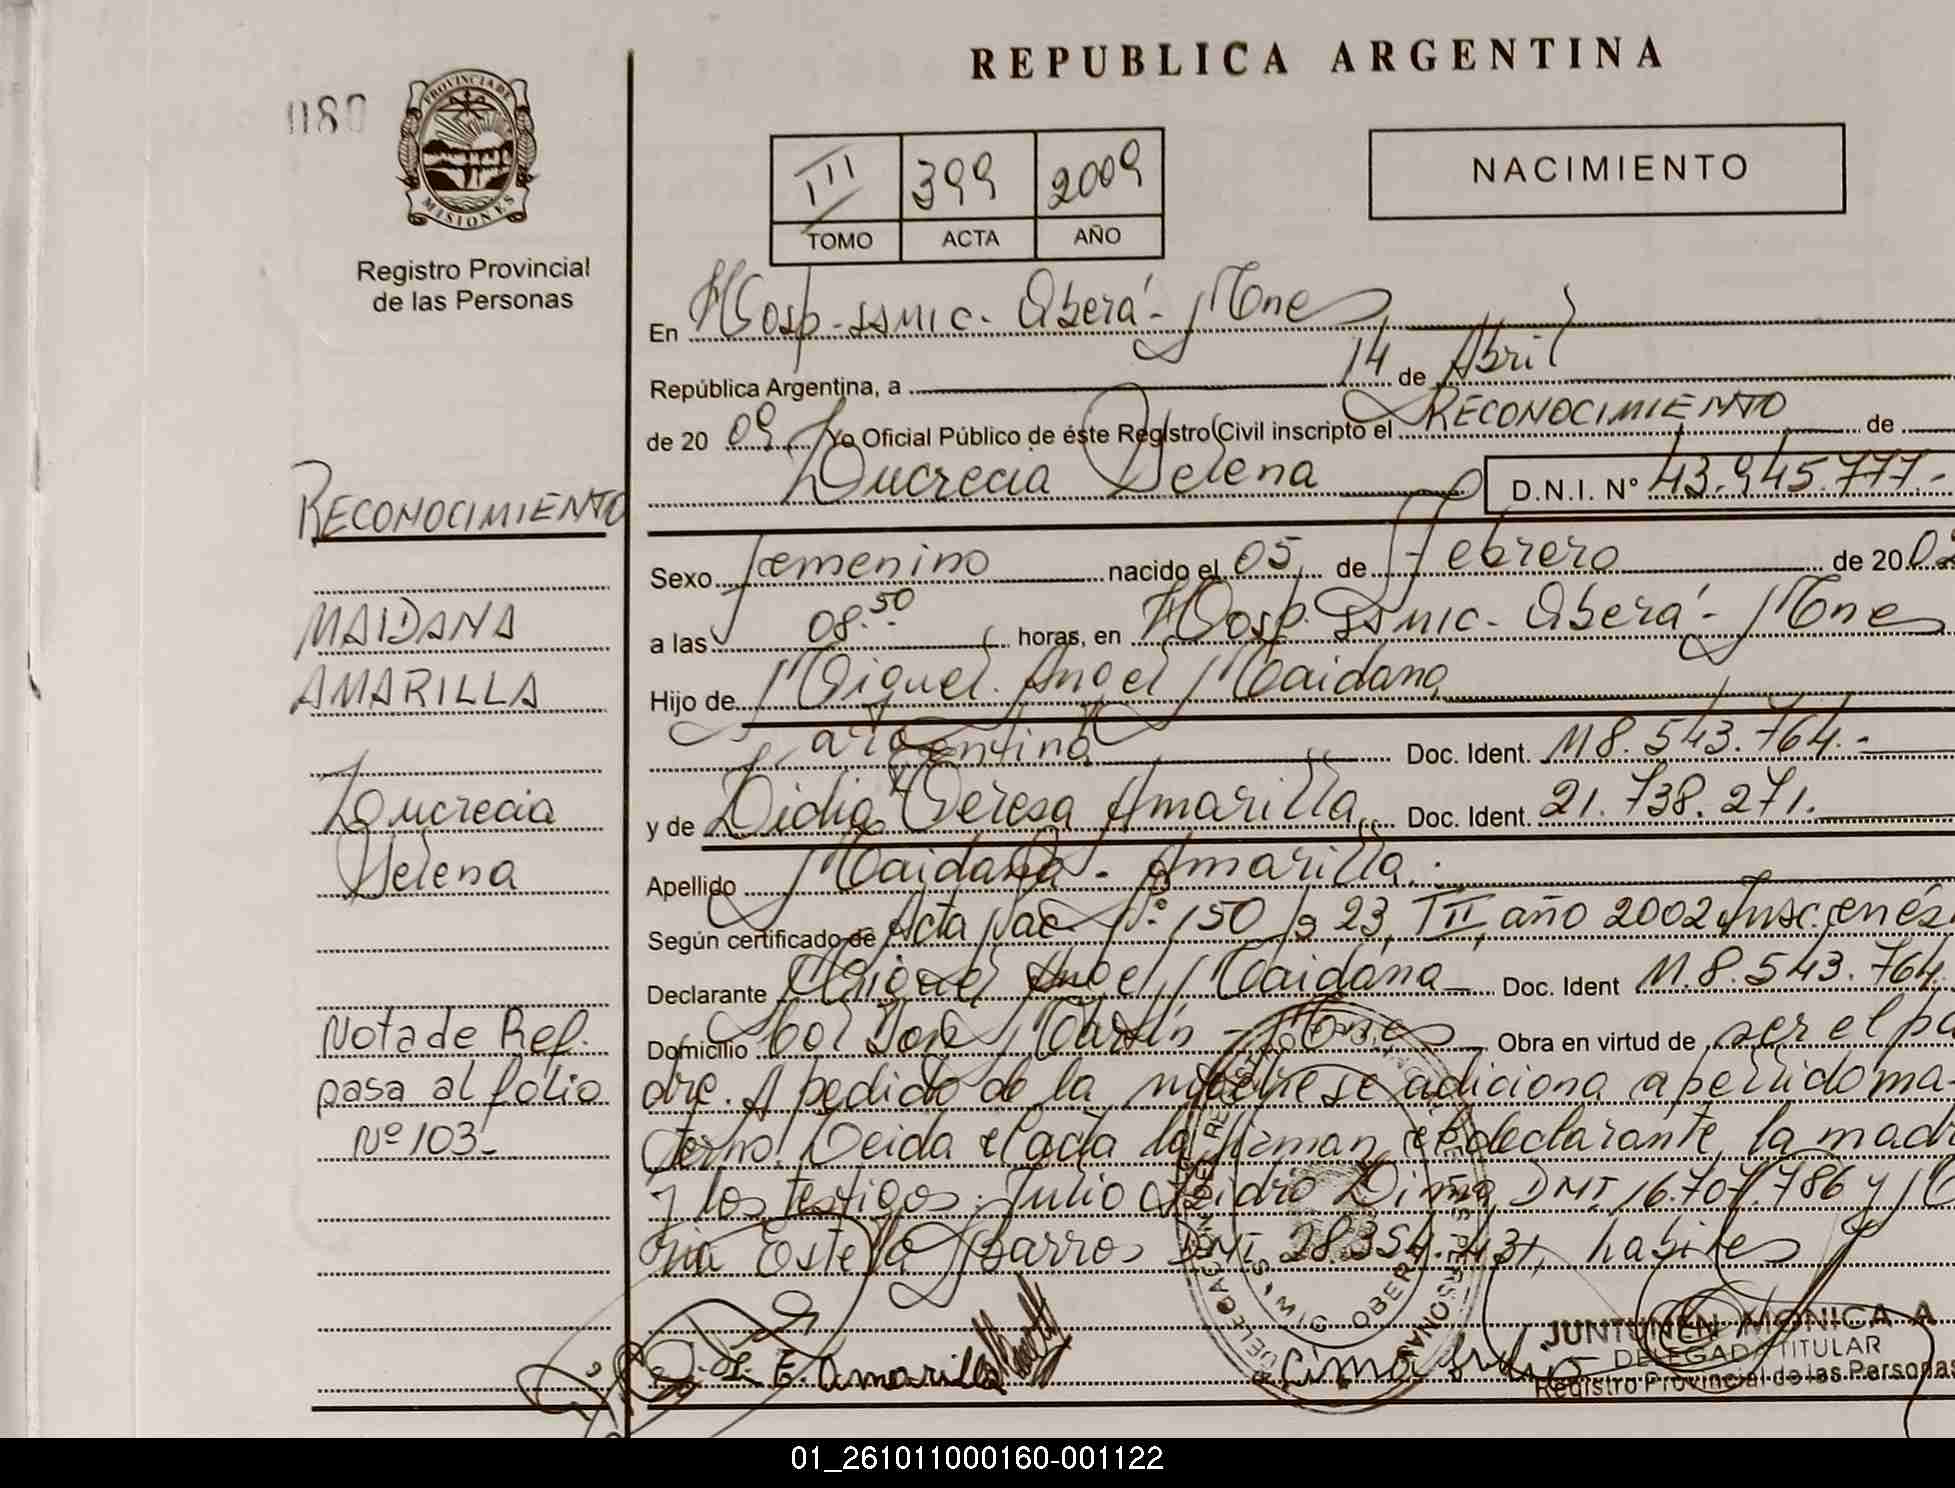 REPUBLICA ARGENTINA
080
PROVINCIA DE
MISIONES
Registro Provincial
de las Personas
III 399 2009
TOMO ACTA AÑO
NACIMIENTO
En Hosp. SSMIC. Oberá - Mnes
República Argentina, a 14 de Abril
de 20 09 Yo Oficial Público de éste Registro Civil inscripto el RECONOCIMIENTO de
Lucrecia Selena D.N.I. Nº 43.945.777.-
Sexo femenino nacido el 05 de Febrero de 200
a las 08.50 horas, en Hosp. SSMIC - Oberá - Mnes
Hijo de Miguel Angel Maidana
argentino Doc. Ident. M8.543.764.-
y de Lidia Teresa Amarilla Doc. Ident. 21.738.271.
Apellido Maidana - Amarilla.
Según certificado de Acta Nac. Nº 150 23, III, año 2002
Declarante Miguel Angel Maidana Doc. Ident M.8.543.764
Domicilio Mnes Obra en virtud de ser el pa
dre. A pedido de la madre se adiciona apellido ma-
terno. Leida el acta la firman el declarante, la mad
y los testigos: Julio Isidro Lima DNI 16.707.786 y
ria Estela Barros DNI 28.354.431, habiles
L. E. Amarilla
Lima Julio
DELEGACION DEL REGISTRO PROVINCIAL DE LAS PERSONAS
OBERA
JUNTUNEN MONICA A
DELEGADA TITULAR
Registro Provincial de las Personas
RECONOCIMIENTO
MAIDANA
AMARILLA
Lucrecia
Selena
Nota de Ref.
pasa al folio
Nº 103-
01_261011000160-001122